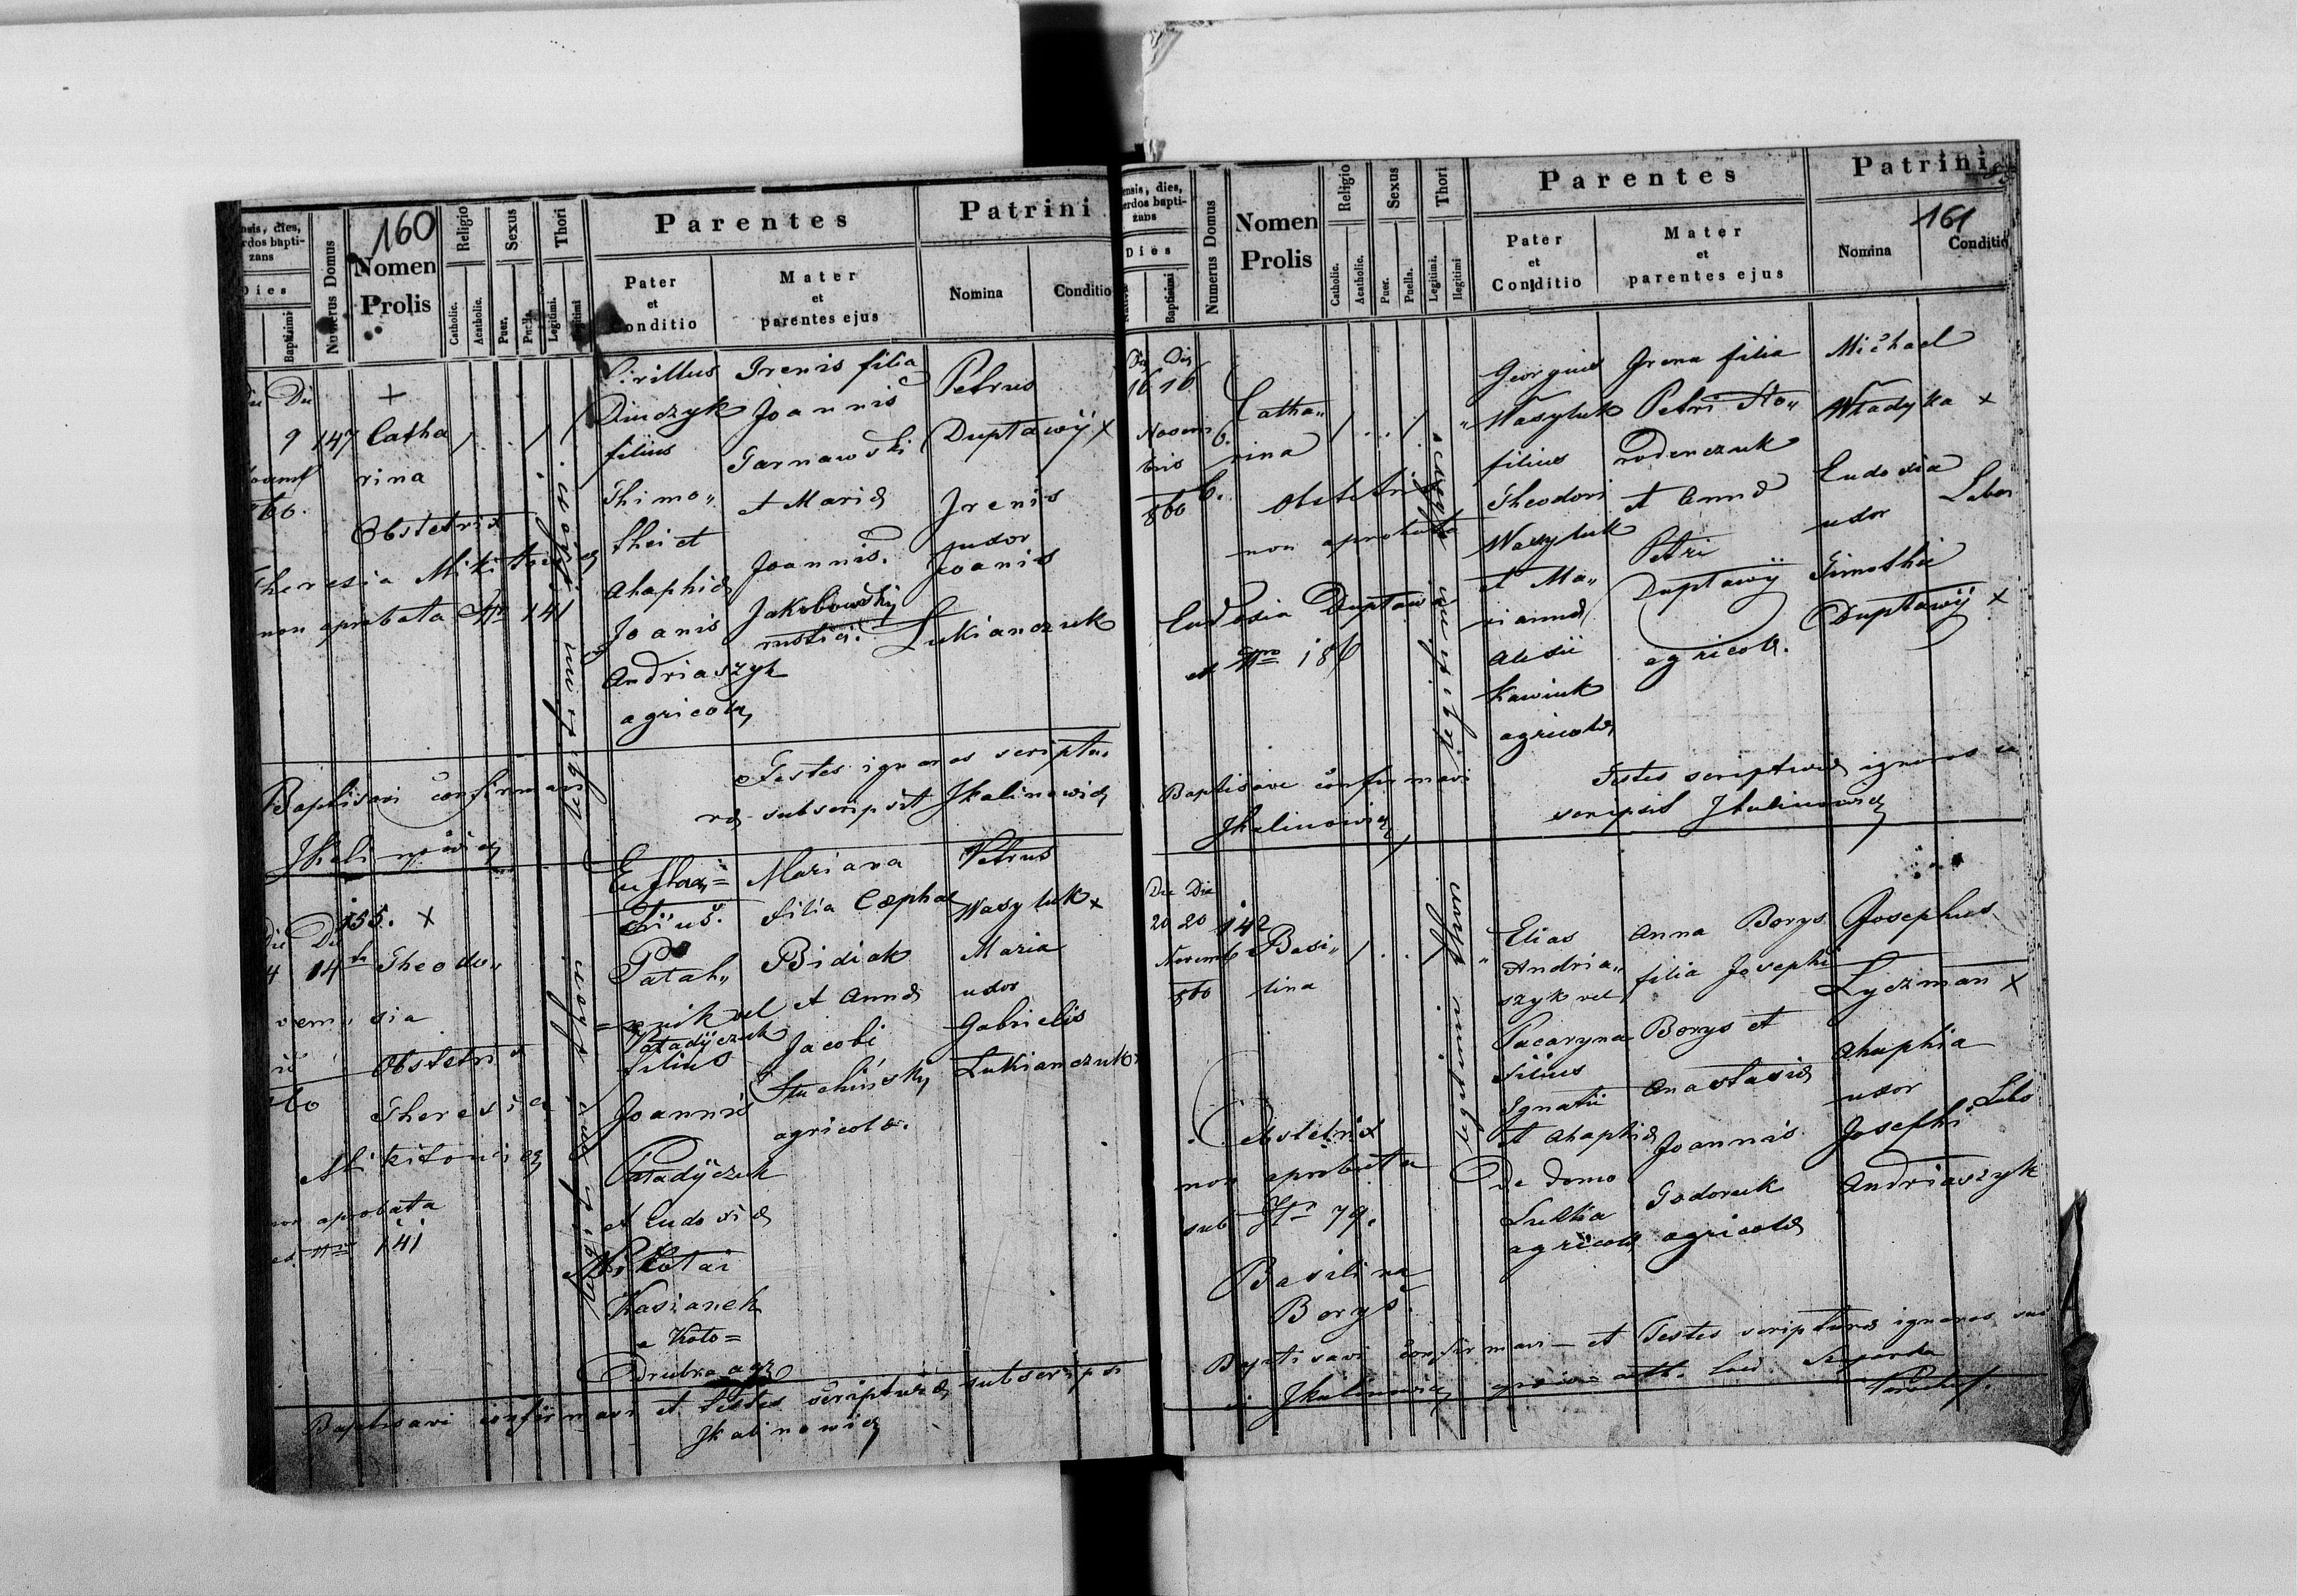 160
nsis, dies,
rdos bapti-
zans
Dies
Baptismi
Numerus Domus
Nomen
Prolis
Religio
Catholic.
Acatholic.
Sexus
Puer.
Puella.
Thori
Legitimi.
Parentes
Pater
et
Conditio
Mater
et
parentes ejus
Patrini
Nomina
Conditio
Die
9
147
+
Catha
rina
Obstetrix
Theresia
non aprobata Nr 141
legitimi thori
Cirillus
Dinczyk
filius
Thimo„
thei et
Ahaphiæ
Joanis
Andriaszyk
agricolæ
Irenis filia
Joannis
Tarnawski
et Mariæ
Joannis
Jakobowsky
rustici.
Petrus
Duptawÿ ×
Irenis
uxor
Joanis
Lukianczuk
Baptisavi confirmavi
JKalinowicz
Testes ignaros scriptu„
ræ subscripsit JKalinowicz
Die
14
155. ×
Theodo„
sia
Obstetrix
Theresia
Mikitowicz
non aprobata
141
legitimi thori
Eustax=
Patah„
=nik vel
Patadÿczuk
filius
Joannis
Patadÿczuk
et Eudoxiæ
Nikolai
Kasianek
e Koto=
Drubka agr
Mariana
filia Cepha
Bidiak
et Annæ
Jacobi
Stuchinsky
agricolæ.
Petrus
Wasyluk ×
Maria
uxor
Gabrielis
Lukianczuk
Baptisavi confirmavi et testes scripturæ subscripsi
JKalinowicz
161
ensis, dies,
erdos bapti-
zans
Dies
Baptismi
Numerus Domus
Nomen
Prolis
Religio
Catholic.
Acatholic.
Sexus
Puer.
Puella.
Thori
Legitimi.
Illegitimi
Parentes
Pater
et
Conditio
Mater
et
parentes ejus
Patrini
Nomina
Conditio
Die Die
16 16
Novem
bris
860
6.
Catha„
rina
Obstetrix
non aprobata
Eudosia Duptaw
et Nro 186
legitimi thori
Georgius
Wasyluk
filius
Theodori
Wasyluk
et Ma„
riannæ
Alexii
Kawiuk
agricolæ
Irena filia
Petri Ho„
rodenczuk
et Annæ
Petri
Duptawÿ
agricolæ.
Michael
Władyka ×
Eudoxia
uxor
Timothei
Duptawÿ ×
Baptisavi confirmavi
JKalinowicz
Testes scripturæ ignaros
scripsit JKalinowicz
Die Die
20 20
Novemb
860
142
Basi„
lina
Obstetrix
non aprobata
sub Nr 79.
Basilina
Borys
legitimi thori
Elias
Andria„
szyk vel
Pacaryna
filius
Ignatii
et Ahaphiæ
De domo
agricolæ
Anna Borys
filia Josephi
Borys et
Anastasiæ
Joannis
Todoruk
agricolæ
Josephus
Lyczman ×
Ahaphia
uxor
Josephi
Andriaszyk
Baptisavi confirmavi et Testes scripturæ ignaros
JKalinowicz
Parochus.